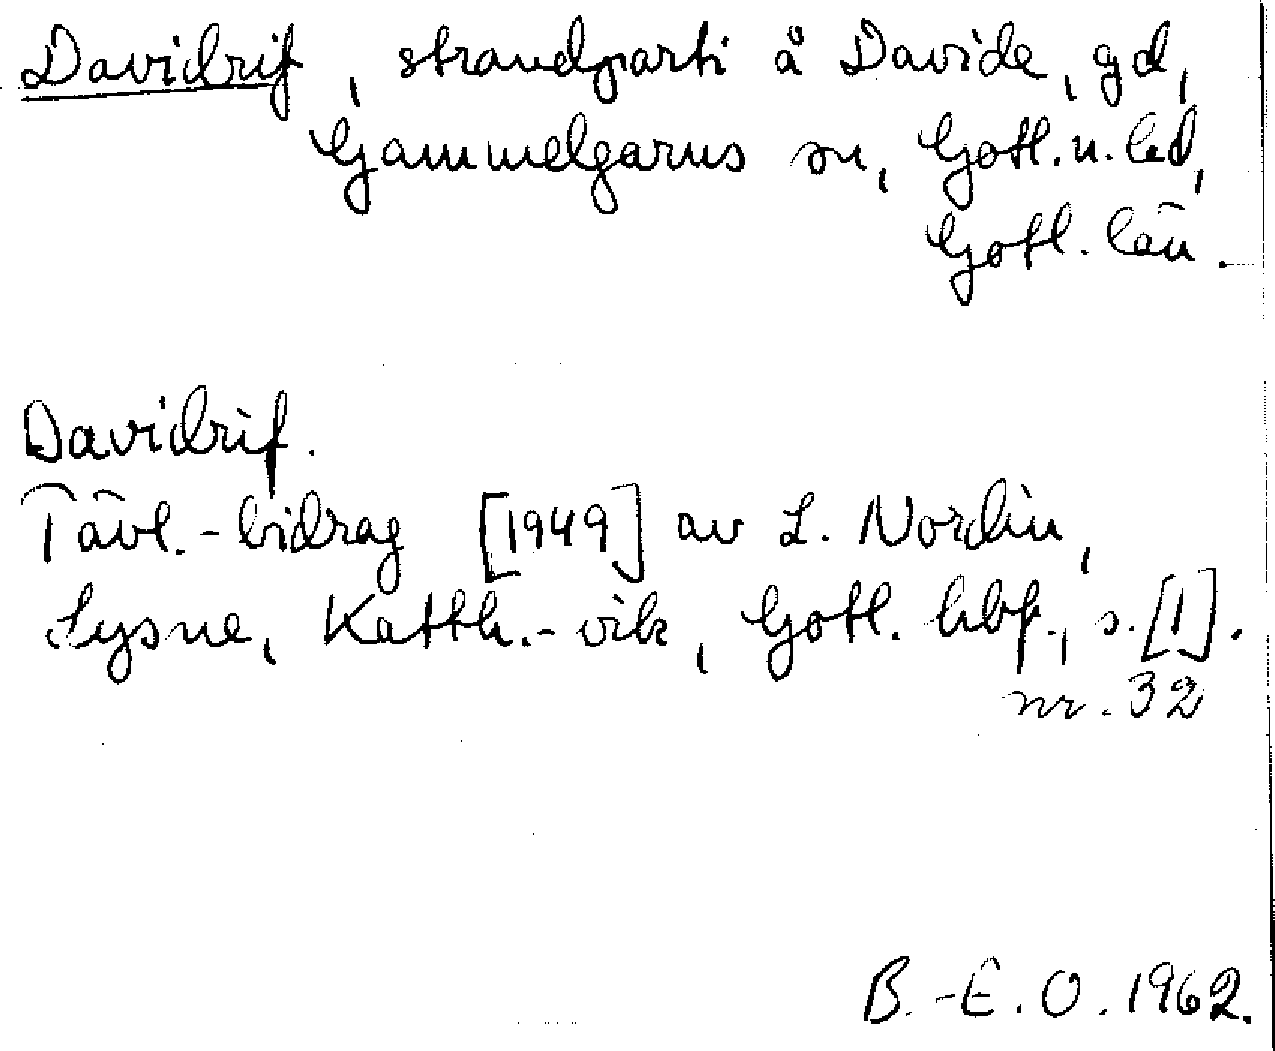 Davidrif, strandparti å Davide, gd,
Gammelgarns sn, Gotl. n. lcd,
Gotl. län.
Davidrif.
Tävl.-bidrag [1949] av L. Nordin,
Sysne, Katth.-vik, Gotl. hbf., s. [1].
nr. 32
B.-E. O. 1962.